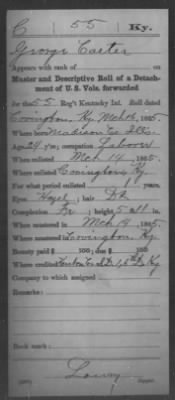 C 55 Ky.
George Carter
Appears with rank of
Muster and Descriptive Roll of a Detachment
of U. S. Vols. forwarded
for the 55 Reg't Kentucky Inf. Roll dated
Covington, Ky. Mch 14, 1865.
Where born Madison Co. Ills.
Age 29 y'rs; occupation Laborer
When enlisted Mch 14, 1865.
Where enlisted Covington, Ky.
For what period enlisted years.
Eyes Hazel; hair Dk
Complexion Fr; height 5 ft. in.
When mustered in Mch 14, 1865.
Where mustered in Covington, Ky.
Bounty paid $ 100; due $ 100
Where credited Ky
Company to which assigned
Remarks:
Book mark: